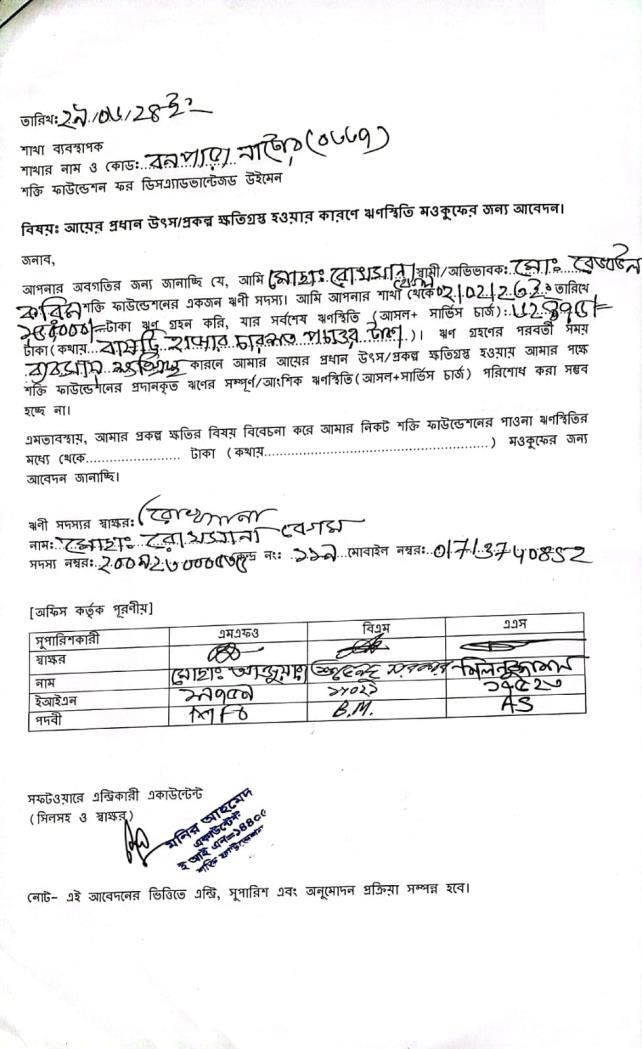 তারিখ: ২৯/০৬/২৪ইং
শাখা ব্যবস্থাপক
শাখার নাম ও কোড: বনপাড়া নাটোর (০৬৬৭)
শক্তি ফাউন্ডেশন ফর ডিসএ্যাডভান্টেজড উইমেন
বিষয়: আয়ের প্রধান উৎস/প্রকল্প ক্ষতিগ্রস্ত হওয়ার কারণে ঋণস্থিতি মওকুফের জন্য আবেদন।
জনাব,
আপনার অবগতির জন্য জানাচ্ছি যে, আমি মোছাঃ রোখসানা বেগম স্বামী/অভিভাবক: মোঃ
করিম শক্তি ফাউন্ডেশনের একজন ঋণী সদস্য। আমি আপনার শাখা থেকে তারিখে
টাকা ঋণ গ্রহন করি, যার সর্বশেষ ঋণস্থিতি (আসল+ সার্ভিস চার্জ):
টাকা (কথায় বাষট্টি হাজার চারশত পচাত্তর টাকা)। ঋণ গ্রহণের পরবর্তী সময়
ব্যবসায় ক্ষতিগ্রস্থ কারনে আমার আয়ের প্রধান উৎস/প্রকল্প ক্ষতিগ্রস্ত হওয়ায় আমার পক্ষে
শক্তি ফাউন্ডেশনের প্রদানকৃত ঋণের সম্পূর্ণ/আংশিক ঋণস্থিতি (আসল+সার্ভিস চার্জ) পরিশোধ করা সম্ভব
হচ্ছে না।
এমতাবস্থায়, আমার প্রকল্প ক্ষতির বিষয় বিবেচনা করে আমার নিকট শক্তি ফাউন্ডেশনের পাওনা ঋণস্থিতির
মধ্যে থেকে..................... টাকা (কথায়..................................................) মওকুফের জন্য
আবেদন জানাচ্ছি।
ঋণী সদস্যর স্বাক্ষর: রোখসানা
নাম: মোছাঃ রোখসানা বেগম
সদস্য নম্বর: নং: ১১৯ মোবাইল নম্বর: 01713740852
[অফিস কর্তৃক পূরণীয়]
সুপারিশকারী এমএফও বিএম এএস
স্বাক্ষর
নাম মোছাঃ সরকার
ইআইএন ১৯৭৫৯ ১৮০২১ ১৭৫২৩
পদবী MFO B.M. AS
সফটওয়ারে এন্ট্রিকারী একাউন্টেন্ট
(সিলসহ ও স্বাক্ষর)
মনির আহমেদ
একাউন্টেন্ট
ই আই এন=১৪৪০৫
শক্তি ফাউন্ডেশন
নোট- এই আবেদনের ভিত্তিতে এন্ট্রি, সুপারিশ এবং অনুমোদন প্রক্রিয়া সম্পন্ন হবে।